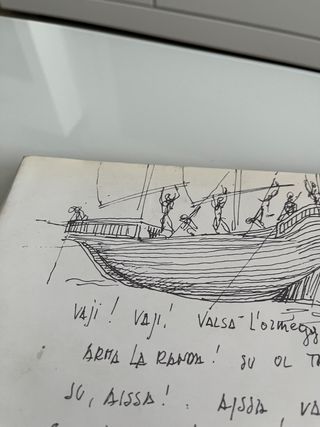 VAJI! VAJI! VALSA L'ORMEGG
ARMA LA RANDA! SU OL T
SU, AISSA! AISSA VA